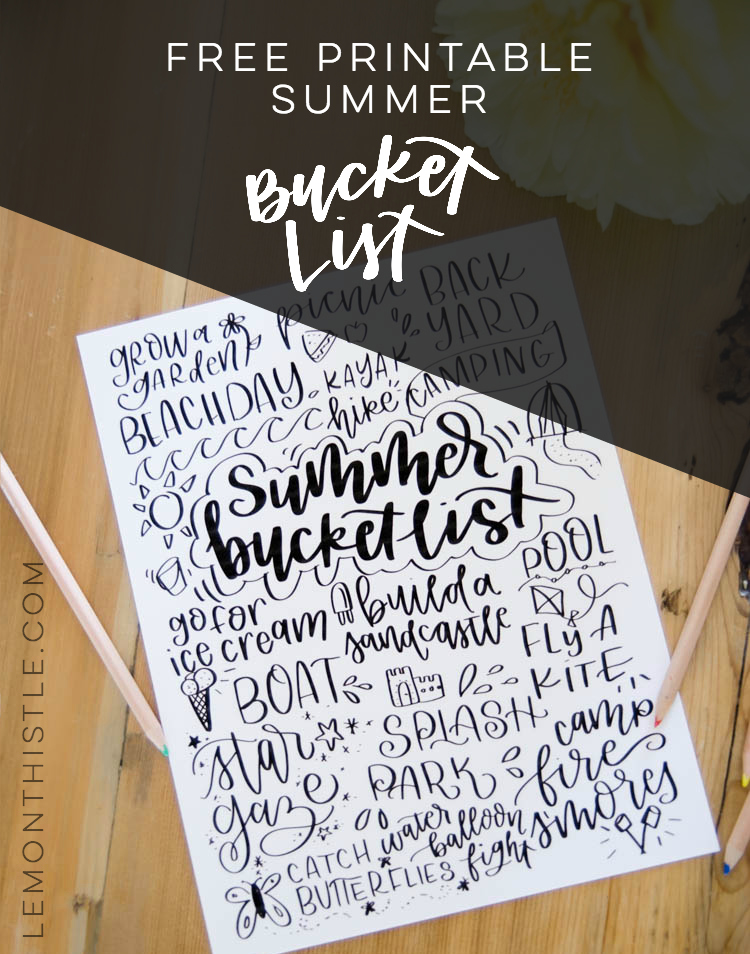 FREE PRINTABLE
SUMMER
Bucket
List
picnic BACK
YARD
grow a
garden
BEACH DAY
KAYAK
hike CAMPING
Summer
bucket list
POOL
go for
ice cream
build a
sandcastle
FLY A
KITE
BOAT
SPLASH
PARK
star
gaze
camp
fire
smores
CATCH
BUTTERFLIES
water
balloon
fight
LEMONTHISTLE.COM